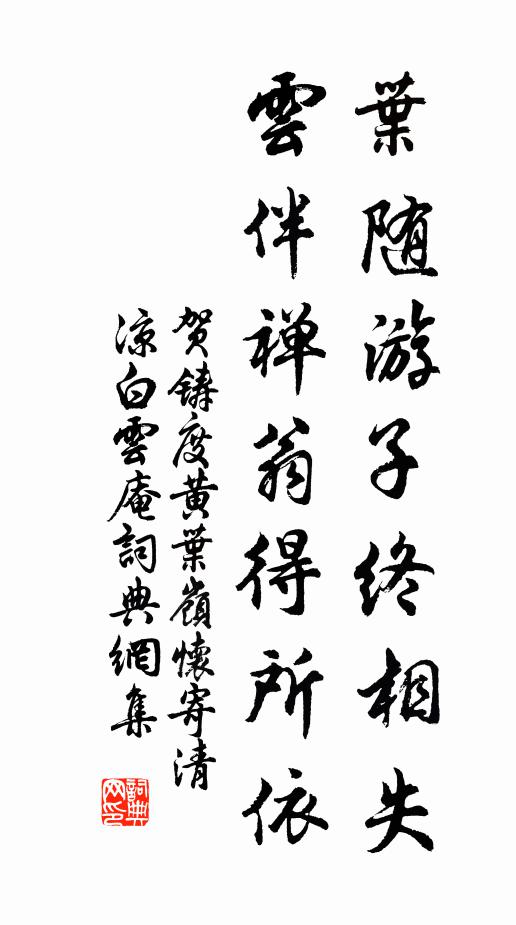 葉随游子终相失
雲伴禅翁得所依
贺鑄度黄葉嶺懷寄清
凉白雲庵詞典網集
詞典
网印